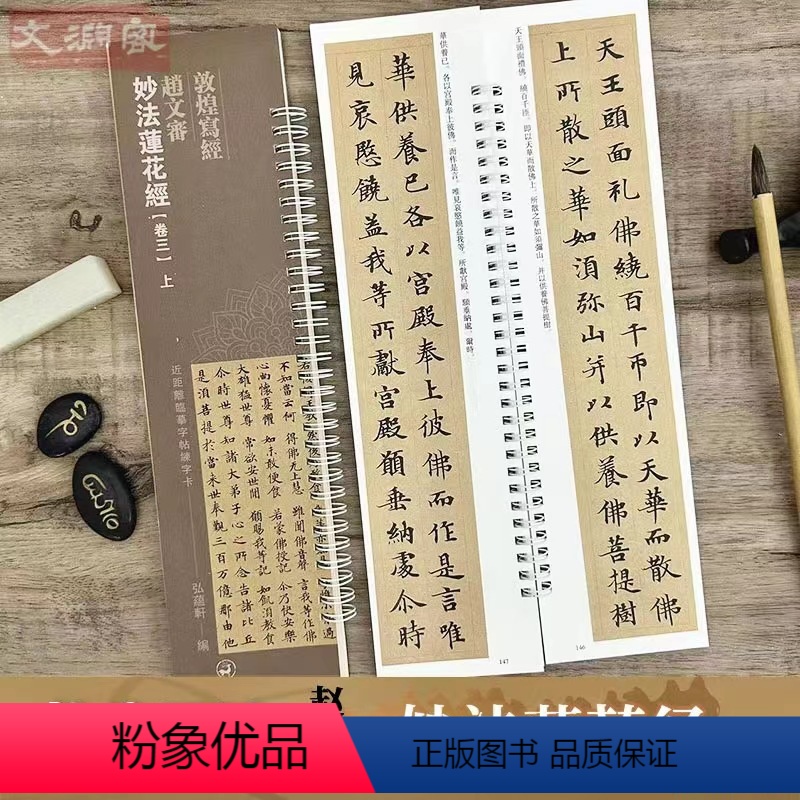 敦煌寫經
趙文審
妙法蓮花經【卷三】上
近距離臨摹字帖練字卡
不如當云何 得佛无上慧 雖聞佛音聲 言我等作佛
心尚懷憂懼 如未敢便食 若蒙佛授記 尒乃快安樂
大雄猛世尊 常欲安世間 願賜我等記 如飢湏教食
尒時世尊知諸大弟子心之所念告諸比丘
是湏菩提於當来世奉覲三百万億那由他
弘蘊軒 編
天王頭面禮佛,繞百千匝,即以天華而散佛上,所散之華如須彌山,并以供養佛菩提樹,
天王頭面礼佛繞百千帀即以天華而散佛
上所散之華如湏弥山并以供養佛菩提樹
146
華供養已,各以宮殿奉上彼佛,而作是言:唯見哀愍饒益我等,所獻宮殿,願垂納處。爾時,
華供養已各以宮殿奉上彼佛而作是言唯
見哀愍饒益我等所獻宮殿願垂納處尒時
147
粉象优品
正版图书 品质保证